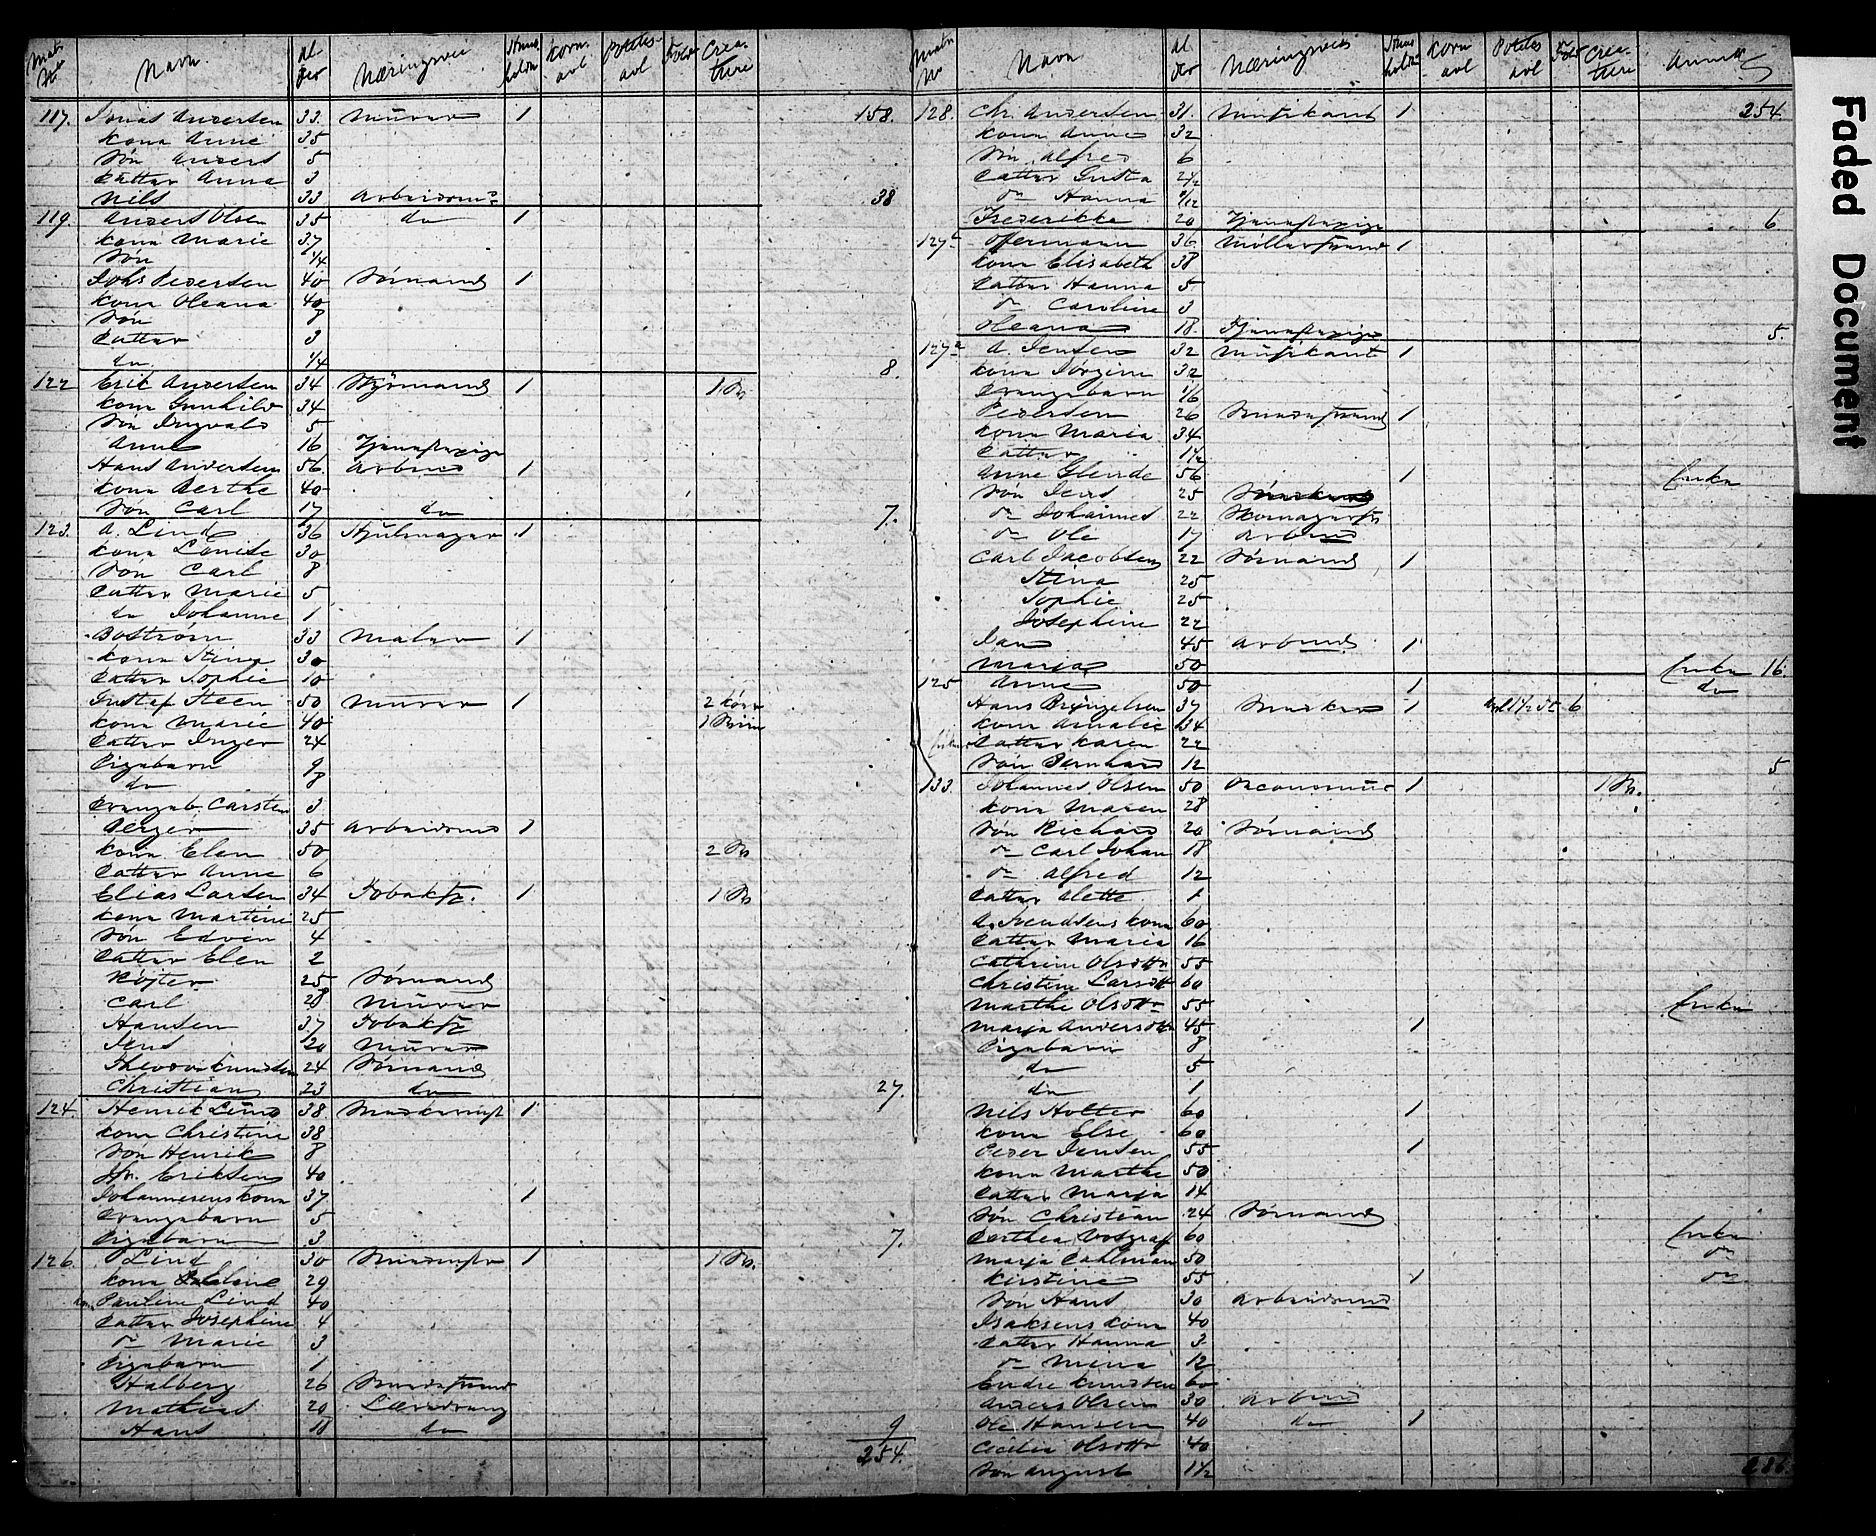 Matr No Navn Alder Næringsvei Huushold. Korn-avl Potetes-avl Foder Crea-ture
117. Jonas Andersen 33 Murer 1 158.
Kone Anne 35
Søn Anders 5
Datter Anna 3
Nils 33 Arbeidsmd 38
119. Anders Olsen 35 do 1
Kone Marie 37
Søn 1/4
Johs Pedersen 40 Sømand 1
Kone Oleana 40
Søn 8
Datter 3
do 1/4 8.
122 Erik Andersen 34 Styrmand 1 1 Sv
Kone Gunhild 34
Søn Ingvald 5
Anne 16 Tjenestepige
Hans Andersen 56 Arbmd 1
Kone Berthe 40
Søn Carl 17 do 7.
123. A. Lind 36 Hjulmager 1
Kone Lovise 30
Søn Carl 8
Datter Marie 5
do Johanne 1
Bostrøm 33 Maler 1
Kone Stina 30
Datter Sophie 10
Gustaf Steen 50 Murer 1 2 Køer
Kone Marie 40 1 Sviin
Datter Inger 24
Pigebarn 9
do 8
Drengeb. Carsten 3
Berger 35 Arbeidsmd 1
Kone Elen 50 2 Sv
Datter Anne 6
Elias Larsen 34 Tobaksf. 1 1 Sv
Kone Martine 25
Søn Edvin 4
Datter Elen 2
25 Sømand
Carl 28 Murer
Hansen 37 Tobaksf
Jens 20 Murer
Theodor Knudsen 24 Sømand
Christian 23 do 27.
124. Henrik Lind 38 1
Kone Christine 38
Søn Henrik 8
Jfr. Eriksen 40
Johannesens Kone 37 1
Drengebarn 5
Pigebarn 3 7.
126. P Lind 30 Smedmester 1 1 Sv.
Kone Eline 29
Pauline Lind 40
Datter Josephine 4
do Marie 3
Pigebarn 1
Halberg 26 Smedsvend
Mathias 20 Læredreng
Hans 18 do 9
254.
Matr No Navn Alder Næringsvei Huushold. Korn avl Potetes avl Foder Crea-ture Anmærk
128. Chr. Andersen 31. Musikant 1 254
Kone Anne 32
Søn Alfred 6
Datter Gusta 2 1/2
do Hanna
Frederikke 20 Tjenestepige 6
127 Ofermann 36 Møllersvend 1
Kone Elisabeth 38
Datter Hanna 5
do Caroline 3
Oleana 18 Tjenestepige 5.
127a A. Jensen 32 Musikant 1
Kone Jørgine 32
Drengebarn 1/6
Pedersen 26 Smedesvend 1
Kone Maria 34
Datter 1 1/2
Anne Glende 56 1 Enke
Søn Jens 25
do Johannes 22
do Ole 17 Arbmd
Carl Jacobsen 22 Sømand 1
Stina 25
Sophie 25
Josephine 22
Jan 45 Arbmd 1
Maria 50 Enke 16.
125 Anne 50 1 do
Hans Bringelsen 37 Snedker 1 6
Kone Amalie 34
Datter Karen 22
Søn Bernhard 12 5
133. Johannes Olsen 50 1 1 Sv.
Kone Maren 28
Søn Richard 20 Sømand
do Carl Johan 18
do Alfred 12
Datter Alette 1
A. Svendsens Kone 60
Datter Maria 16
Cathrine Olsdtr 55
Christine Larsdtr 60
Marthe Olsdtr 55 Enke
Marja Andersdtr 45 1
Pigebarn 8
do 5
do 1
Nils Holter 60 1
Kone Else 60
Peder Jensen 55 1
Kone Marthe 50
Datter Marja 14
Søn Christian 24 Sømand
Dorthea 60 Enke
Marja Dahlman 50 do
Kirstine 55 1 do
Søn Hans 30 Arbeidsmd
Isaksens Kone 40
Datter Hanna 3
do Mina 12
Endre Knudsen 60
Anders Olsen 30 Arbmd
Ole Hansen 40 do 1
Cecilia Olsdtr 40
Søn August 1 1/2 286
Faded Document